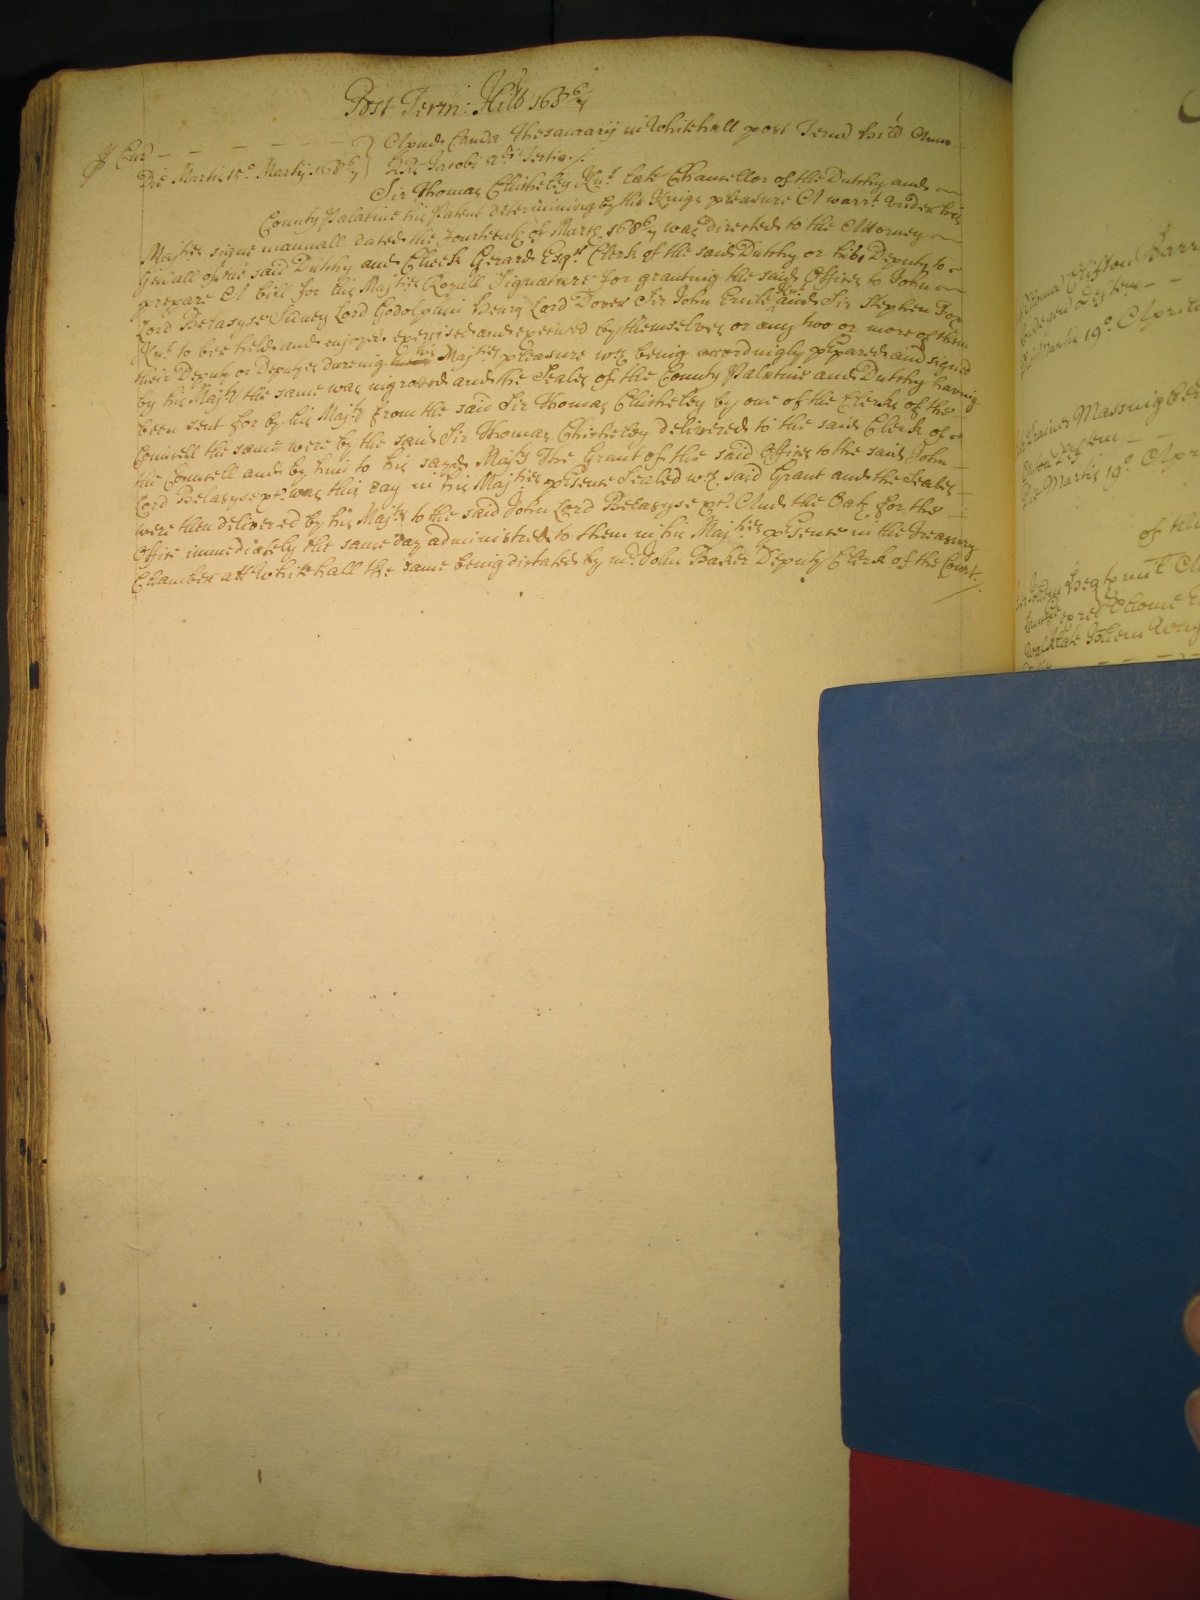 Post Term: Hill 168 6/7
ff Eur̃ — — — — — — — } Apud Camã Thesaurarij in Whitehall post Termũ Hill Anno
Die Martis 15o Martij 168 6/7 } RRs Jacobi 2di Tertio./.
Sir Thomas Chicheley Knt. late Chancellor of the Dutchy and
County Palatine his Patent determining by the Kings pleasure A warrt. under his
Majties signe manuall dated the Fourteenth of March 168 6/7 was directed to the Attorney
Genall of the said Dutchy and Cheek Gerard Esqr. Clerk of the said Dutchy or his Deputy to
prepare A bill for his Majties Royall Signature for granting the said Offices to John
Lord Belasyse Sidney Lord Godolphin Henry Lord Dover Sir John Ernle Knt. and Sir Stephen Fox
Knt. to bee held and enjoyed exercised and executed by themselves or any two or more of them
their Deputy or Deputyes dureing his Majties pleasure wch. being accordingly ppared and signed
by his Majty the same was ingrossed and the Seales of the County Palatine and Dutchy having
been sent for by his Majty from the said Sir Thomas Chicheley by one of the Clerks of the
Councell the same were by the said Sir Thomas Chicheley delivered to the said Clerk of
the Councell and by him to his sayd Majty The Grant of the said Offices to the said John
Lord Belasyse &c. was this day in his Majties psence Sealed wch. said Grant and the Seales
were then delivered by his Majty to the said John Lord Belasyse &c. And the Oath for the
Office immediately the same day administred to them in his Majties psence in the Treasury
Chamber att Whitehall the same being dictated by mr. John Baker Deputy Clerk of the Court./.
Clifton
Die Martis 19o Aprilis
Massingber
Die Martis 19o Apr
of the